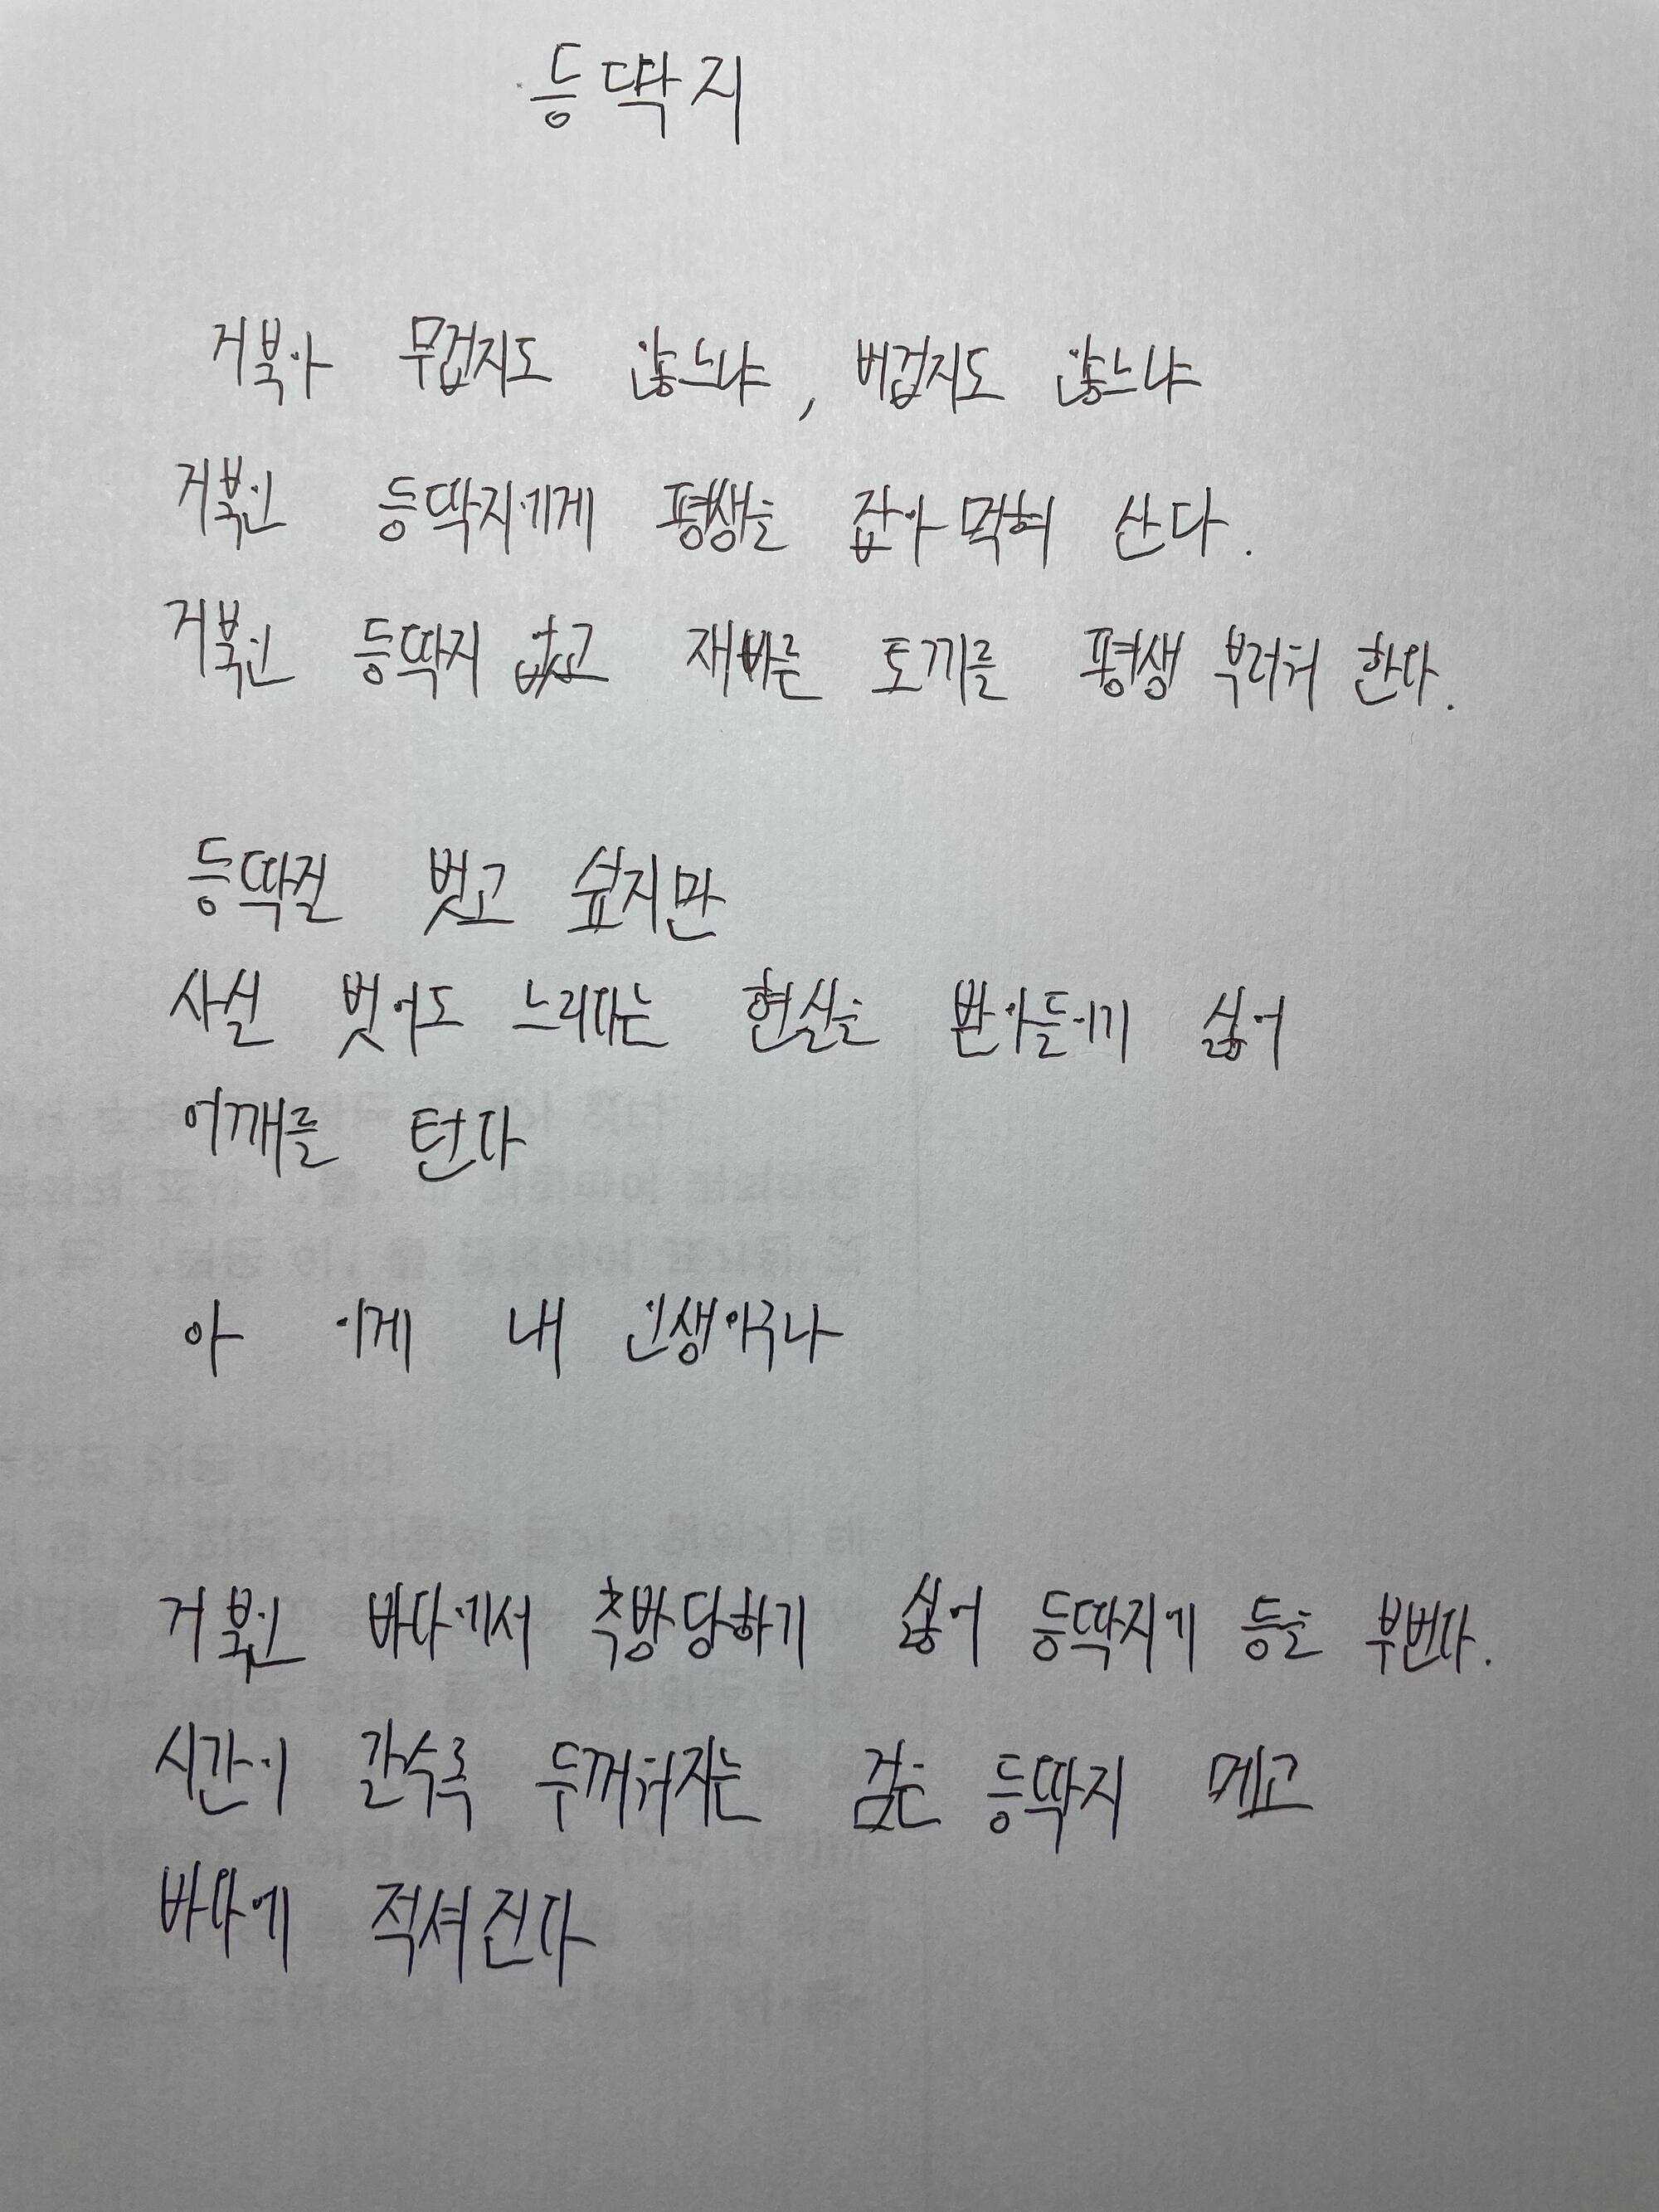 등딱지
거북아 무겁지도 않느냐, 버겁지도 않느냐
거북인 등딱지에게 평생을 잡아 먹혀 산다.
거북인 등딱지 없고 재빠른 토끼를 평생 부러워 한다.
등딱질 벗고 싶지만
사실 벗어도 느리다는 현실을 받아들이기 싫어
어깨를 턴다
아 이게 내 인생이구나
거북인 바다에서 추방당하기 싫어 등딱지에 등을 부빈다.
시간이 갈수록 두꺼워지는 검은 등딱지 메고
바다에 적셔진다